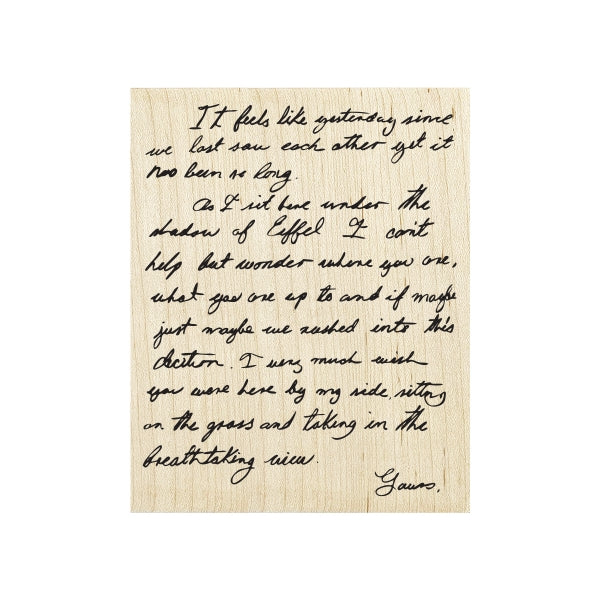 It feels like yesterday since
we last saw each other yet it
has been so long.
As I sit here under the
shadow of Eiffel I can't
help but wonder where you are,
what you are up to and if maybe
just maybe we rushed into this
decition. I very much wish
you were here by my side, sitting
on the grass and taking in the
breathtaking view.
Yours,